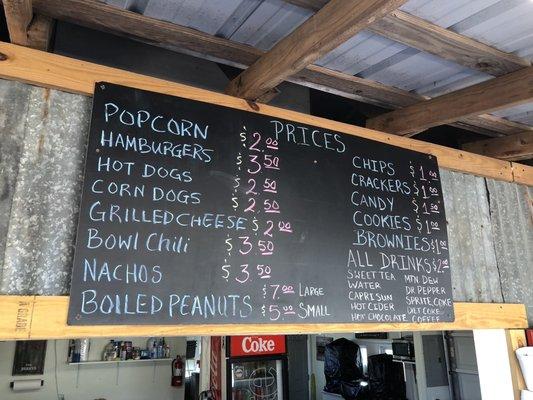 PRICES
POPCORN $2.00
HAMBURGERS $3.50
HOT DOGS $2.50
CORN DOGS $2.50
GRILLED CHEESE $2.00
BOWL Chili $3.50
NACHOS $3.50
BOILED PEANUTS $7.00 LARGE
$5.00 SMALL
CHIPS $1.00
CRACKERS $1.00
CANDY $1.50
COOKIES $1.00
BROWNIES $1.00
ALL DRINKS $2.00
SWEET TEA MTN DEW
WATER DR PEPPER
CAPRISUN SPRITE COKE
HOT CIDER DIET COKE
HOT CHOCOLATE COFFEE
Coke